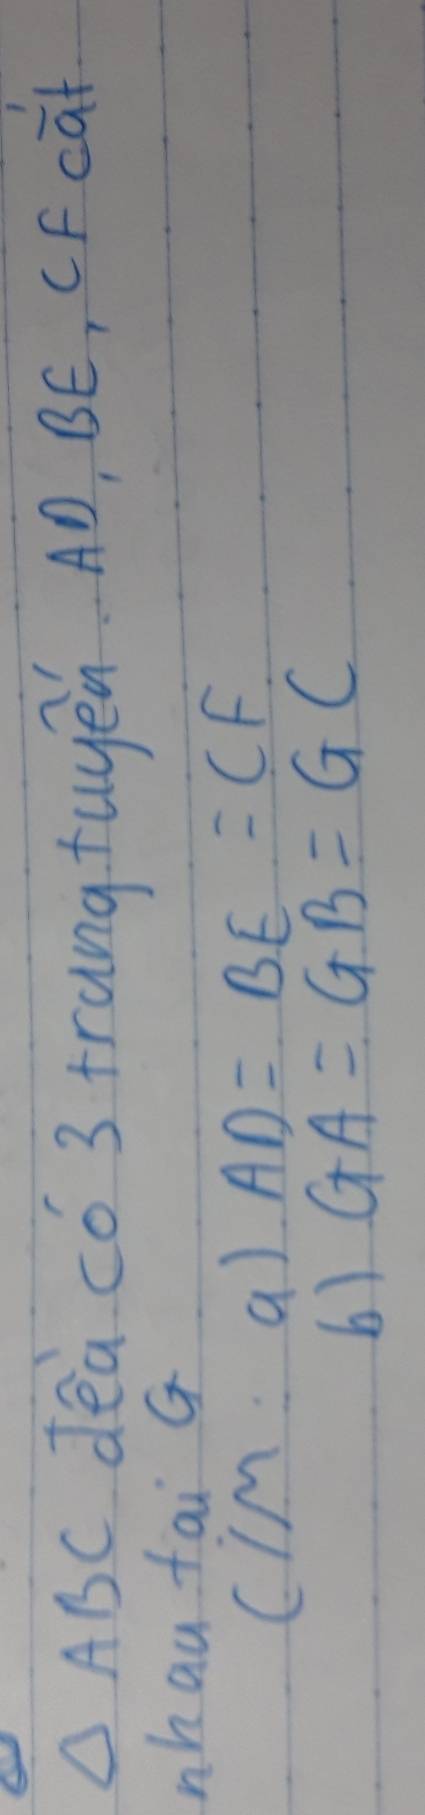 Δ ABC đều có 3 trung tuyến AD, BE, CF cắt
nhau tại G
C/m. a) AD = BE = CF
b) GA = GB = GC